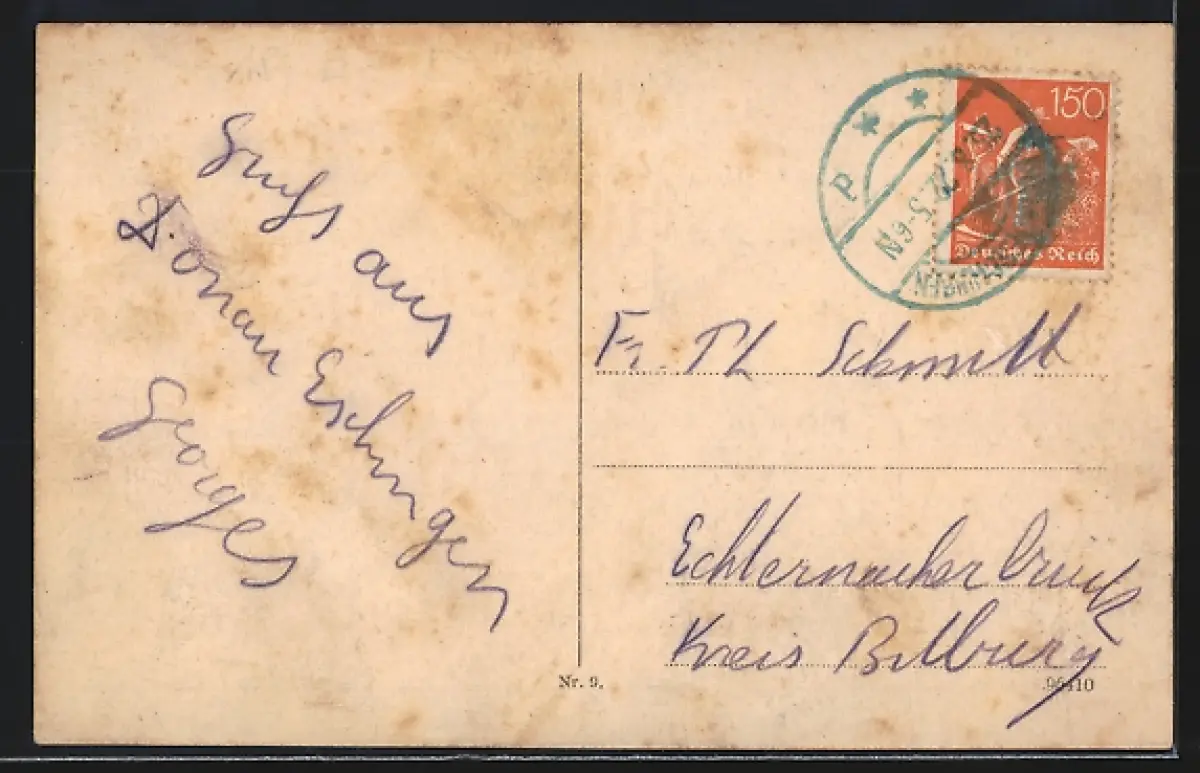 Gruss aus
Donau Eschingen
Georges
150
Deutsches Reich
P
Fr. Th Schmitt
Echternacherbrück
Kreis Bitburg
Nr. 9.
95410